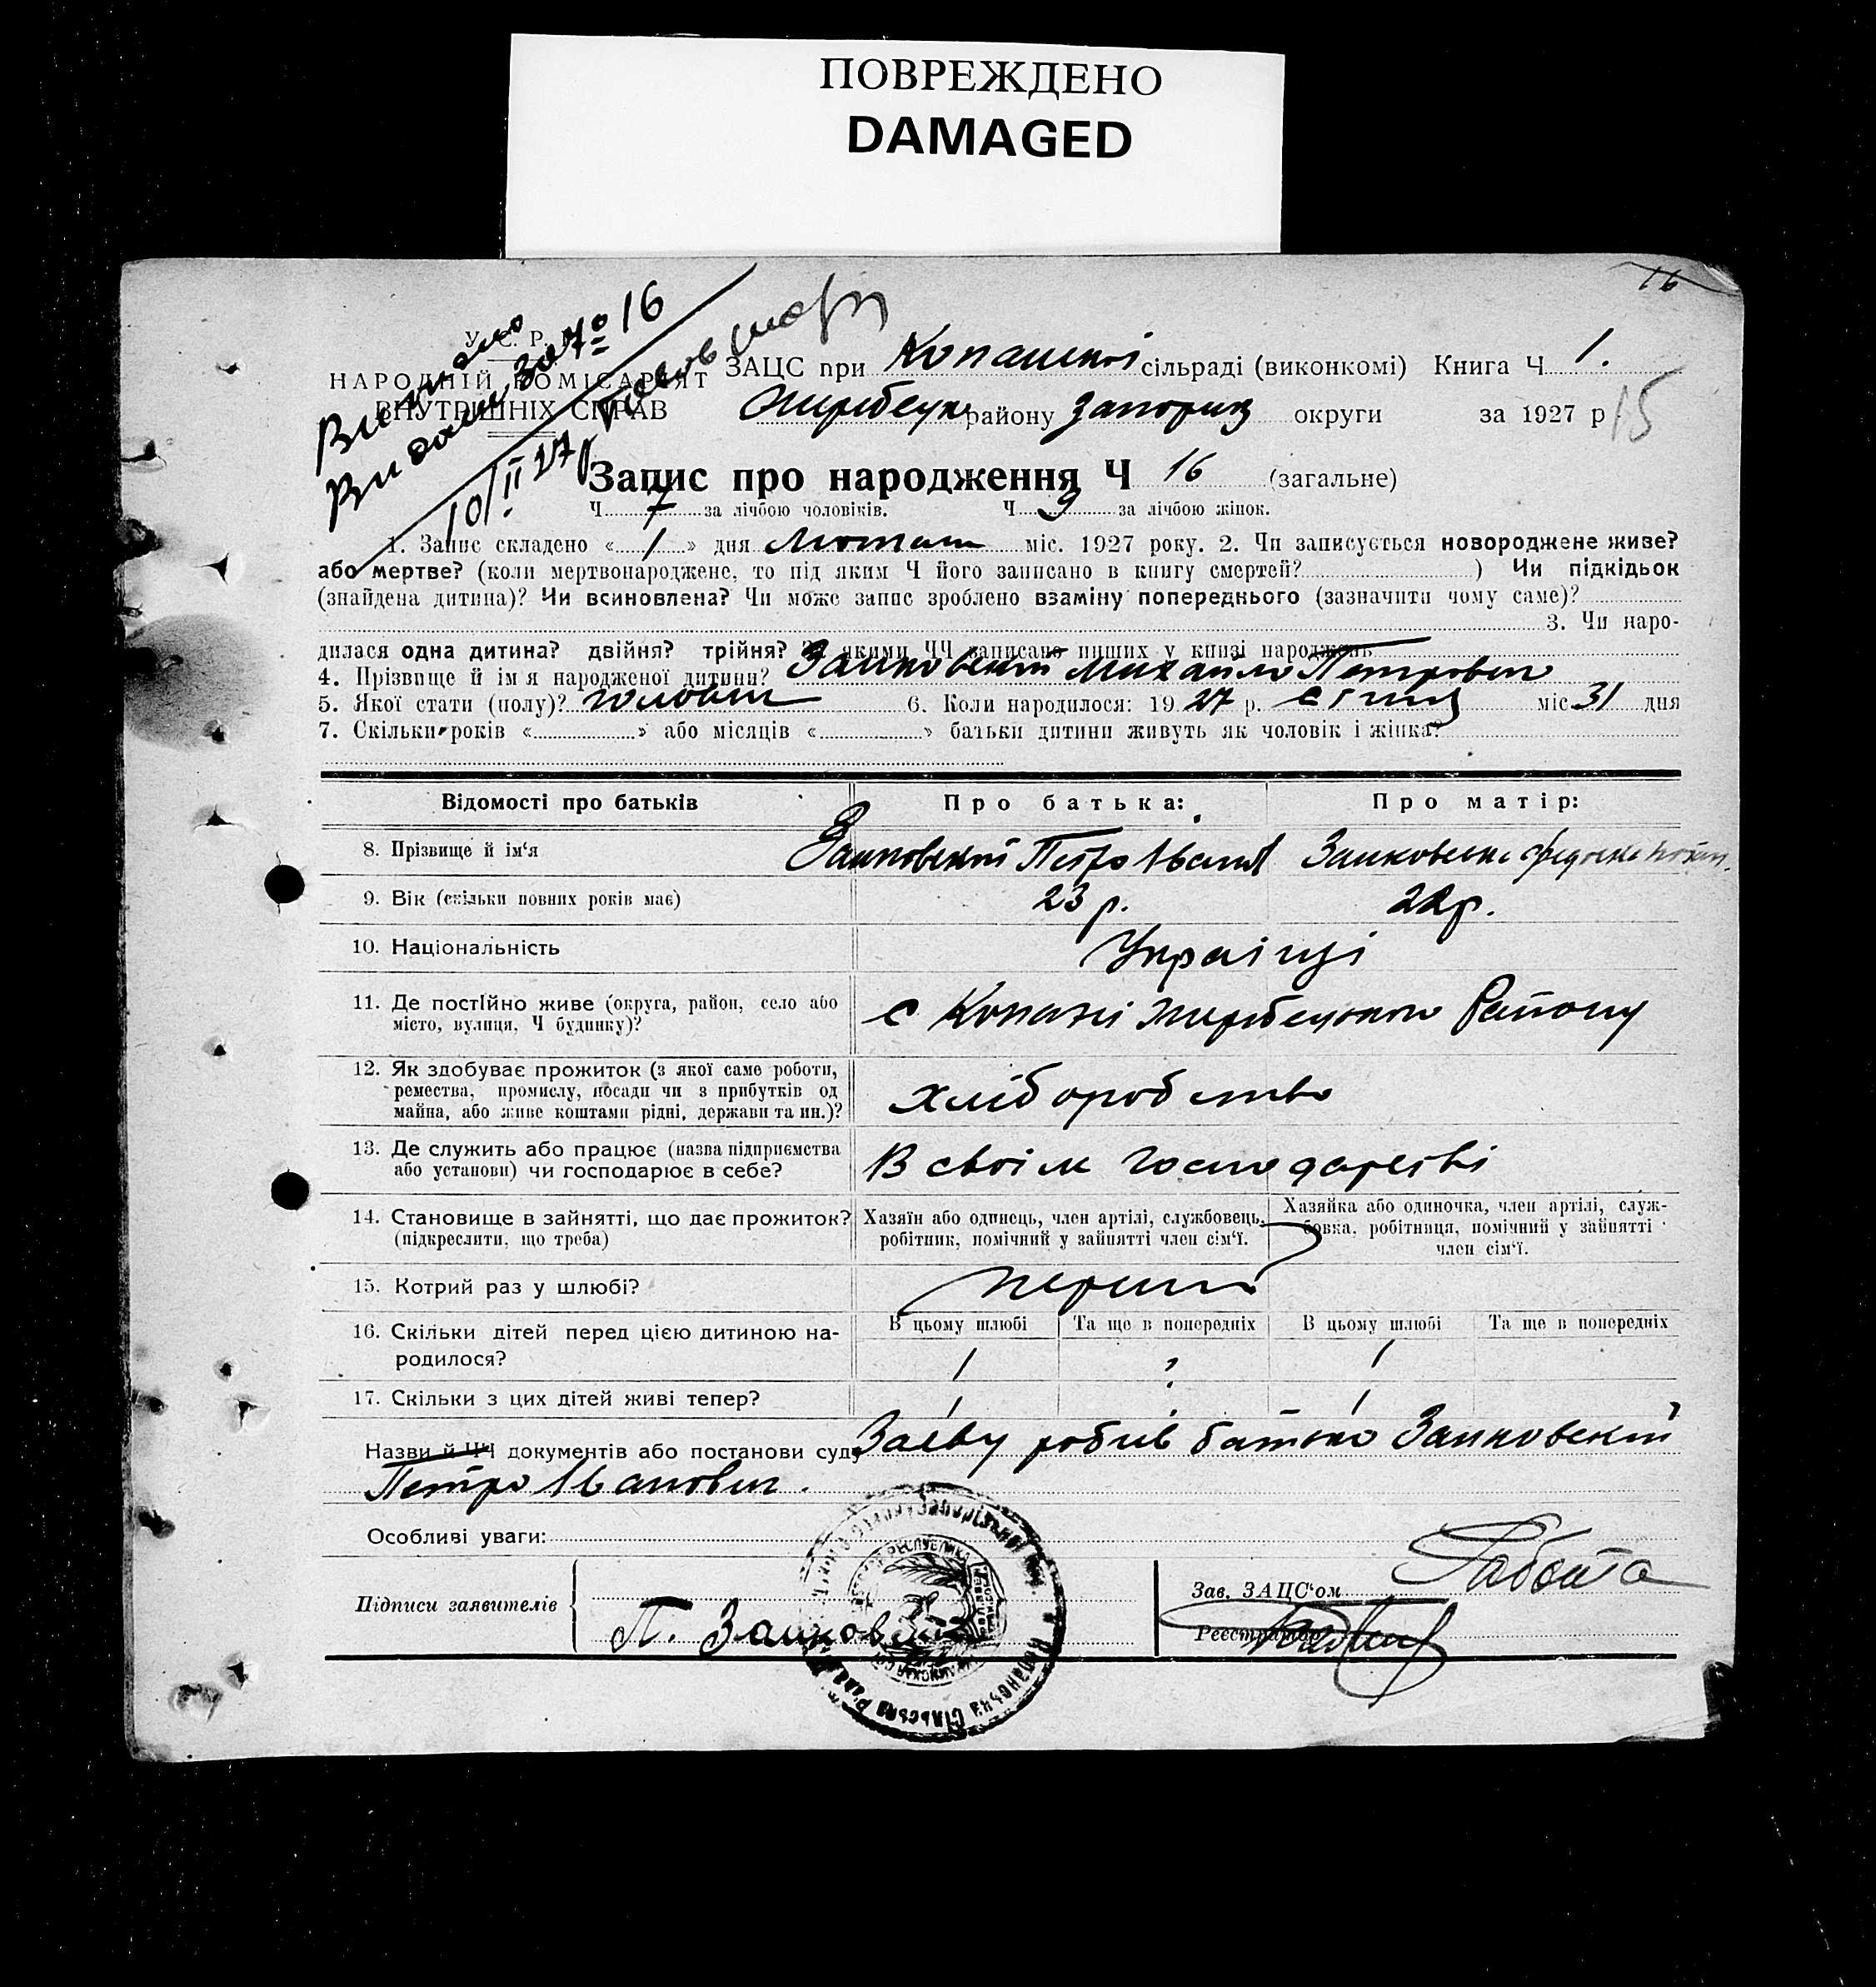 ПОВРЕЖДЕНО
DAMAGED
16
У. С. Р. Р.
НАРОДНІЙ КОМІСАРІЯТ
ВНУТРІШНІХ СПРАВ
Видано за № 16
10/II 27
ЗАЦС при Копанської сільраді (виконкомі) Книга Ч 1.
Жеребецьк району Запоріз округи за 1927 р
15
Запис про народження Ч 16 (загальне)
Ч 7 за лічбою чоловіків. Ч 9 за лічбою жінок.
1. Запис складено « 1 » дня Лютого міс. 1927 року. 2. Чи записується новороджене живе?
або мертве? (коли мертвонароджене, то під яким Ч його записано в книгу смертей? ) Чи підкідьок
(знайдена дитина)? Чи всиновлена? Чи може запис зроблено взаміну попереднього (зазначити чому саме)?
3. Чи наро-
дилася одна дитина? двійня? трійня? За якими ЧЧ записано инших у книзі народжень
4. Прізвище й імя народженої дитини? Заиковский Михайло Петрович
5. Якої стати (полу)? чоловіч 6. Коли народилося: 19 27 р. січня міс 31 дня
7. Скільки років « » або місяців « » батьки дитини живуть як чоловік і жінка?
Відомості про батьків Про батька: Про матір:
8. Прізвище й ім'я Заиковский Петро Іванов Заиковська
9. Вік (скільки повних років має) 23 р. 22 р.
10. Національність Українці
11. Де постійно живе (округа, район, село або місто, вулиця, Ч будинку)? с Копані Жеребецького Району
12. Як здобуває прожиток (з якої саме роботи, ремества, промислу, посади чи з прибутків од майна, або живе коштами рідні, держави та ин.)? хліборобство
13. Де служить або працює (назва підприємства або установи) чи господарює в себе? В своїм господарстві
14. Становище в зайнятті, що дає прожиток? (підкреслити, що треба) Хазяїн або одинець, член артілі, службовець, робітник, помічний у зайнятті член сім'ї. Хазяйка або одиночка, член артілі, служ-бовка, робітниця, помічний у зайнятті член сім'ї.
15. Котрий раз у шлюбі? перший
В цьому шлюбі Та ще в попередніх В цьому шлюбі Та ще в попередніх
16. Скільки дітей перед цією дитиною на-родилося? 1 1
17. Скільки з цих дітей живі тепер? 1 1
Назви й ЧЧ документів або постанови суду Заєву робив батько Заиковский
Петро Іванович.
Особливі уваги:
Підписи заявителів П. Заиковский
Зав. ЗАЦС'ом
Реєстратор